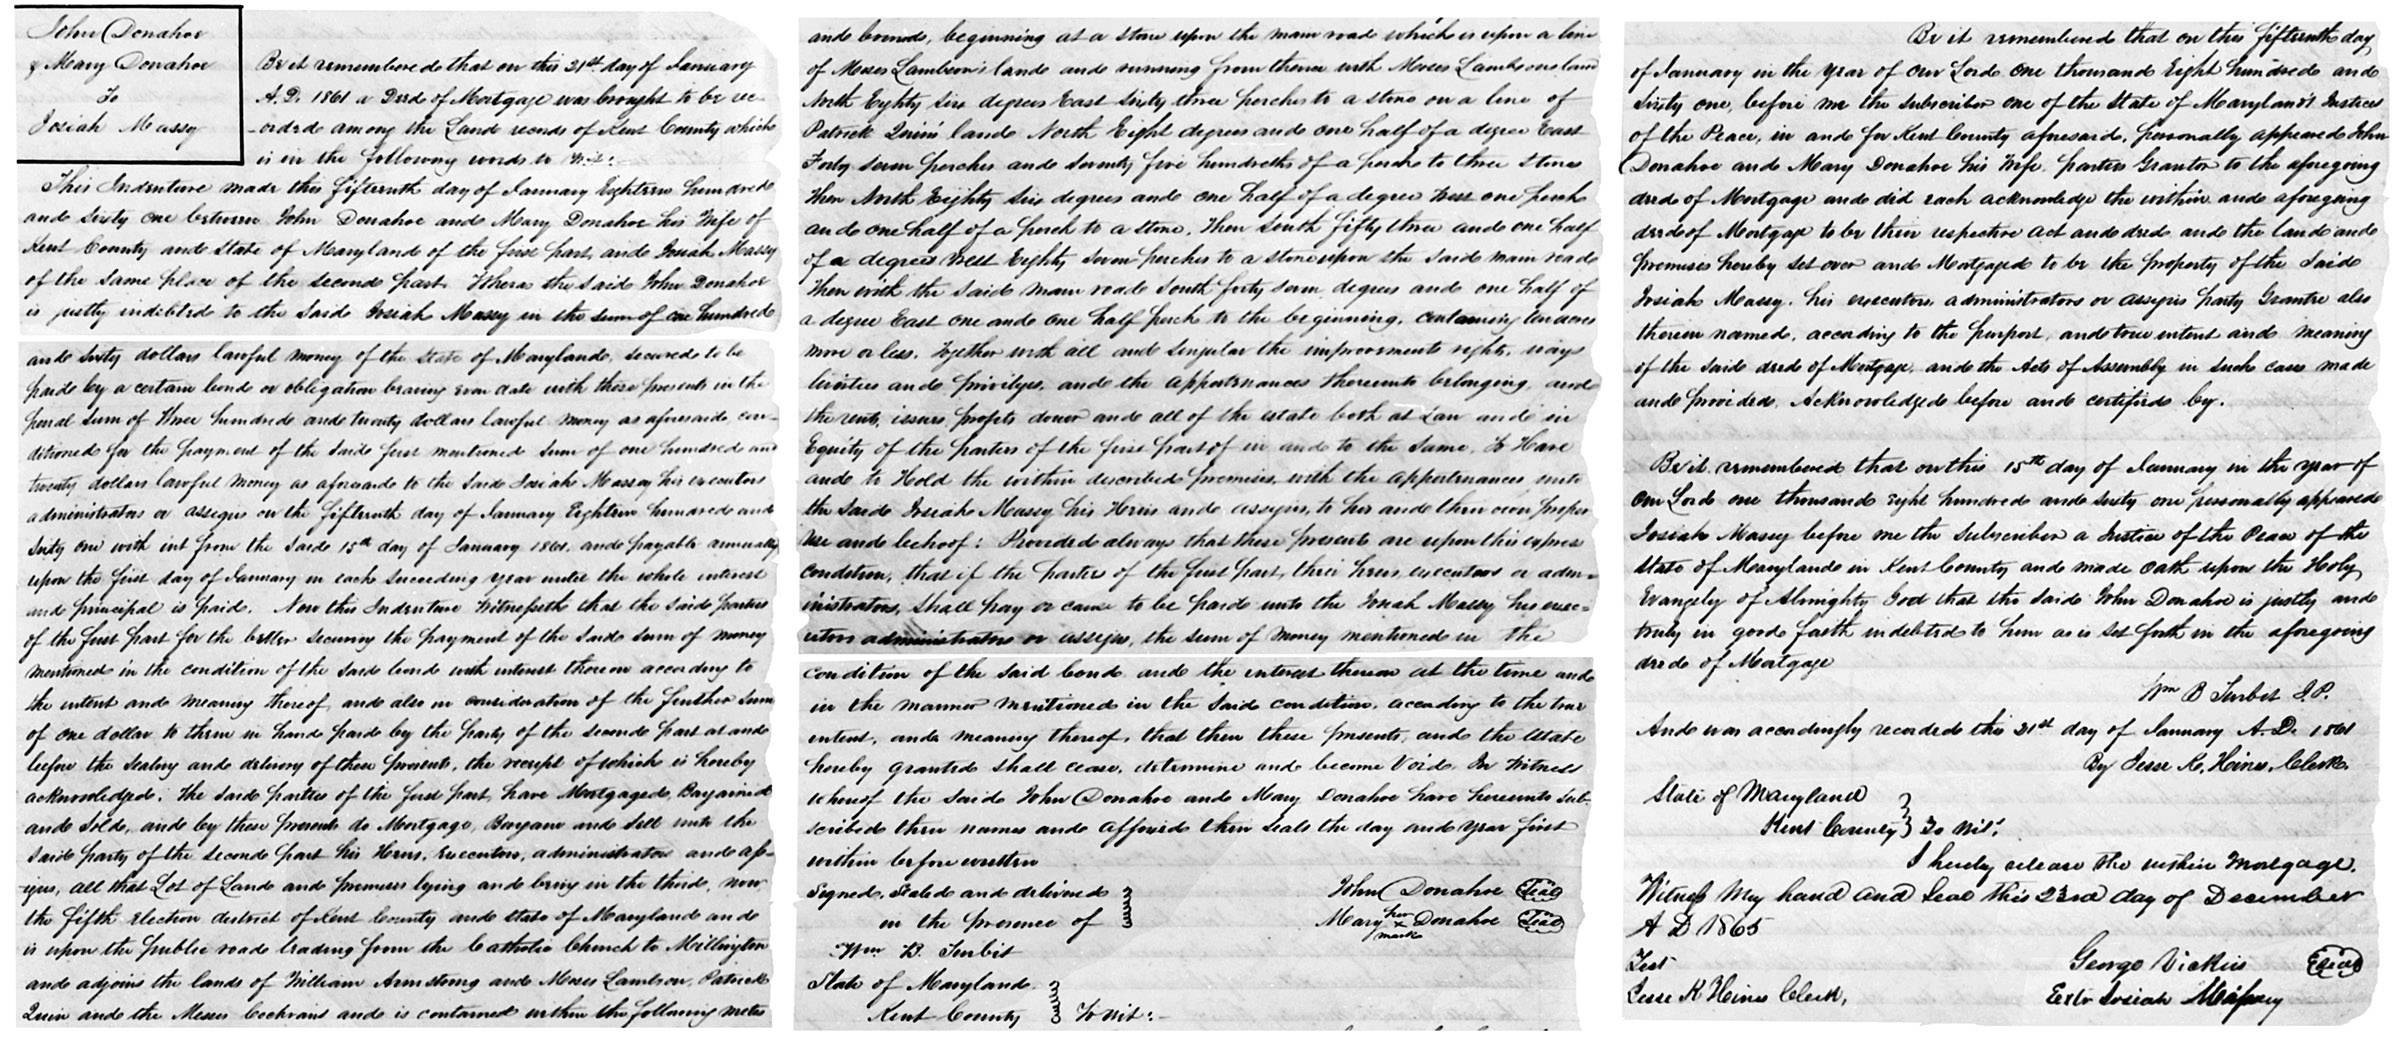 John Donahoe
& Mary Donahoe
To
Josiah Massy
Be it remembered that on this 21st day of January
A.D. 1861 a Deed of Mortgage was brought to be re-
-corded among the Land records of Kent County which
is in the following words to wit:
This Indenture made this fifteenth day of January Eighteen hundred
and sixty one between John Donahoe and Mary Donahoe his Wife of
Kent County and State of Maryland of the first part and Josiah Massy
of the same place of the second part. Whereas the said John Donahoe
is justly indebted to the said Josiah Massey in the sum of one hundred
and sixty dollars lawful money of the state of Maryland, secured to be
paid by a certain bond or obligation bearing even date with these presents in the
penal sum of three hundred and twenty dollars lawful money as aforesaid, con-
ditioned for the payment of the said first mentioned sum of one hundred and
twenty dollars lawful money as aforesaid to the said Josiah Massey his executors
administrators or assigns on the fifteenth day of January Eighteen hundred and
sixty one with int from the said 15th day of January 1861, and payable annually
upon the first day of January in each succeeding year until the whole interest
and principal is paid. Now this Indenture Witnesseth that the said parties
of the first part for the better securing the payment of the said sum of money
mentioned in the condition of the said bond with interest thereon according to
the intent and meaning thereof, and also in consideration of the further sum
of one dollar to them in hand paid by the party of the second part at and
before the sealing and delivery of these presents, the receipt of which is hereby
acknowledged, the said parties of the first part, have Mortgaged, Bargained
and Sold, and by these presents do Mortgage, Bargain and Sell unto the
said party of the second part his Heirs, Executors, administrators and ass-
igns, all that Lot of Land and premises lying and being in the third, now
the fifth election district of Kent County and state of Maryland and
is upon the public road leading from the Catholic Church to Millington
and adjoins the lands of William Armstrong and Moses Lambson, Patrick
Quin and the Messrs Cochrans and is contained within the following metes
and bounds, beginning at a stone upon the main road which is upon a line
of Moses Lambson's land and running from thence with Moses Lambsons land
North Eighty six degrees East sixty three perches to a stone on a line of
Patrick Quin's land North Eight degrees and one half of a degree East
Forty seven perches and seventy five hundredths of a perch to three stones
Then North Eighty six degrees and one half of a degree West one perch
and one half of a perch to a stone. Then South fifty three and one half
of a degrees West Eighty seven perches to a stone upon the said main road
Then with the said main road South forty seven degrees and one half of
a degree East one and one half perch to the beginning, containing ten acres
more or less. Together with all and singular the improvements rights, ways
liberties and privileges, and the appertenances thereunto belonging, and
the rents, issues, profits dower and all of the estate both at Law and in
Equity of the parties of the first part of in and to the same. To Have
and to Hold the within described premises, with the appertenances unto
the said Josiah Massey his Heirs and assigns, to his and their own proper
use and behoof: Provided always that these presents are upon this express
condition, that if the parties of the first part, their heirs, executors or adm-
inistrators, shall pay or cause to be paid unto the Josiah Massey his exec=
utors administrators or assigns, the sum of money mentioned in the
condition of the said bond and the interest thereon at the time and
in the manner mentioned in the said condition, according to the true
intent, and meaning thereof, that then these presents, and the estate
hereby granted shall cease, determine and become Void. In Witness
whereof the said John Donahoe and Mary Donahoe have hereunto sub-
scribed their names and affixed their seals the day and year first
within before written
Signed, Sealed and delivered John Donahoe Seal
in the presence of Mary her x mark Donahoe Seal
Wm. B. Turbit
State of Maryland
Kent County To wit:-
Be it remembered that on this fifteenth day
of January in the year of our Lord one thousand Eight hundred and
sixty one, before me the subscriber one of the State of Maryland's Justices
of the Peace, in and for Kent County aforesaid, personally appeared John
Donahoe and Mary Donahoe his Wife, parties Grantor to the aforegoing
deed of Mortgage and did each acknowledge the within and aforegoing
deed of Mortgage to be their respective act and deed and the land and
premises hereby set over and Mortgaged to be the property of the said
Josiah Massey, his executors, administrators or assigns party Grantee also
therein named, according to the purport, and true intent and meaning
of the said deed of Mortgage, and the Acts of Assembly in such cases made
and provided. Acknowledged before and certified by.
Be it remembered that on this 15th day of January in the year of
our Lord one thousand eight hundred and sixty one personally appeared
Josiah Massey before me the subscriber a Justice of the Peace of the
State of Maryland in Kent County and made oath upon the Holy
Evangely of Almighty God that the said John Donahoe is justly and
truly in good faith indebted to him as is set forth in the aforegoing
deed of Mortgage
Wm B Turbit J.P.
And was accordingly recorded this 21st day of January A.D. 1861
By Jesse K. Hines, Clerk.
State of Maryland
Kent County To wit:
I hereby release the within Mortgage.
Witness my hand and seal this 23rd day of December
A D 1865
Test
George Vickers Seal
Jesse K Hines Clerk, Extr Josiah Massey